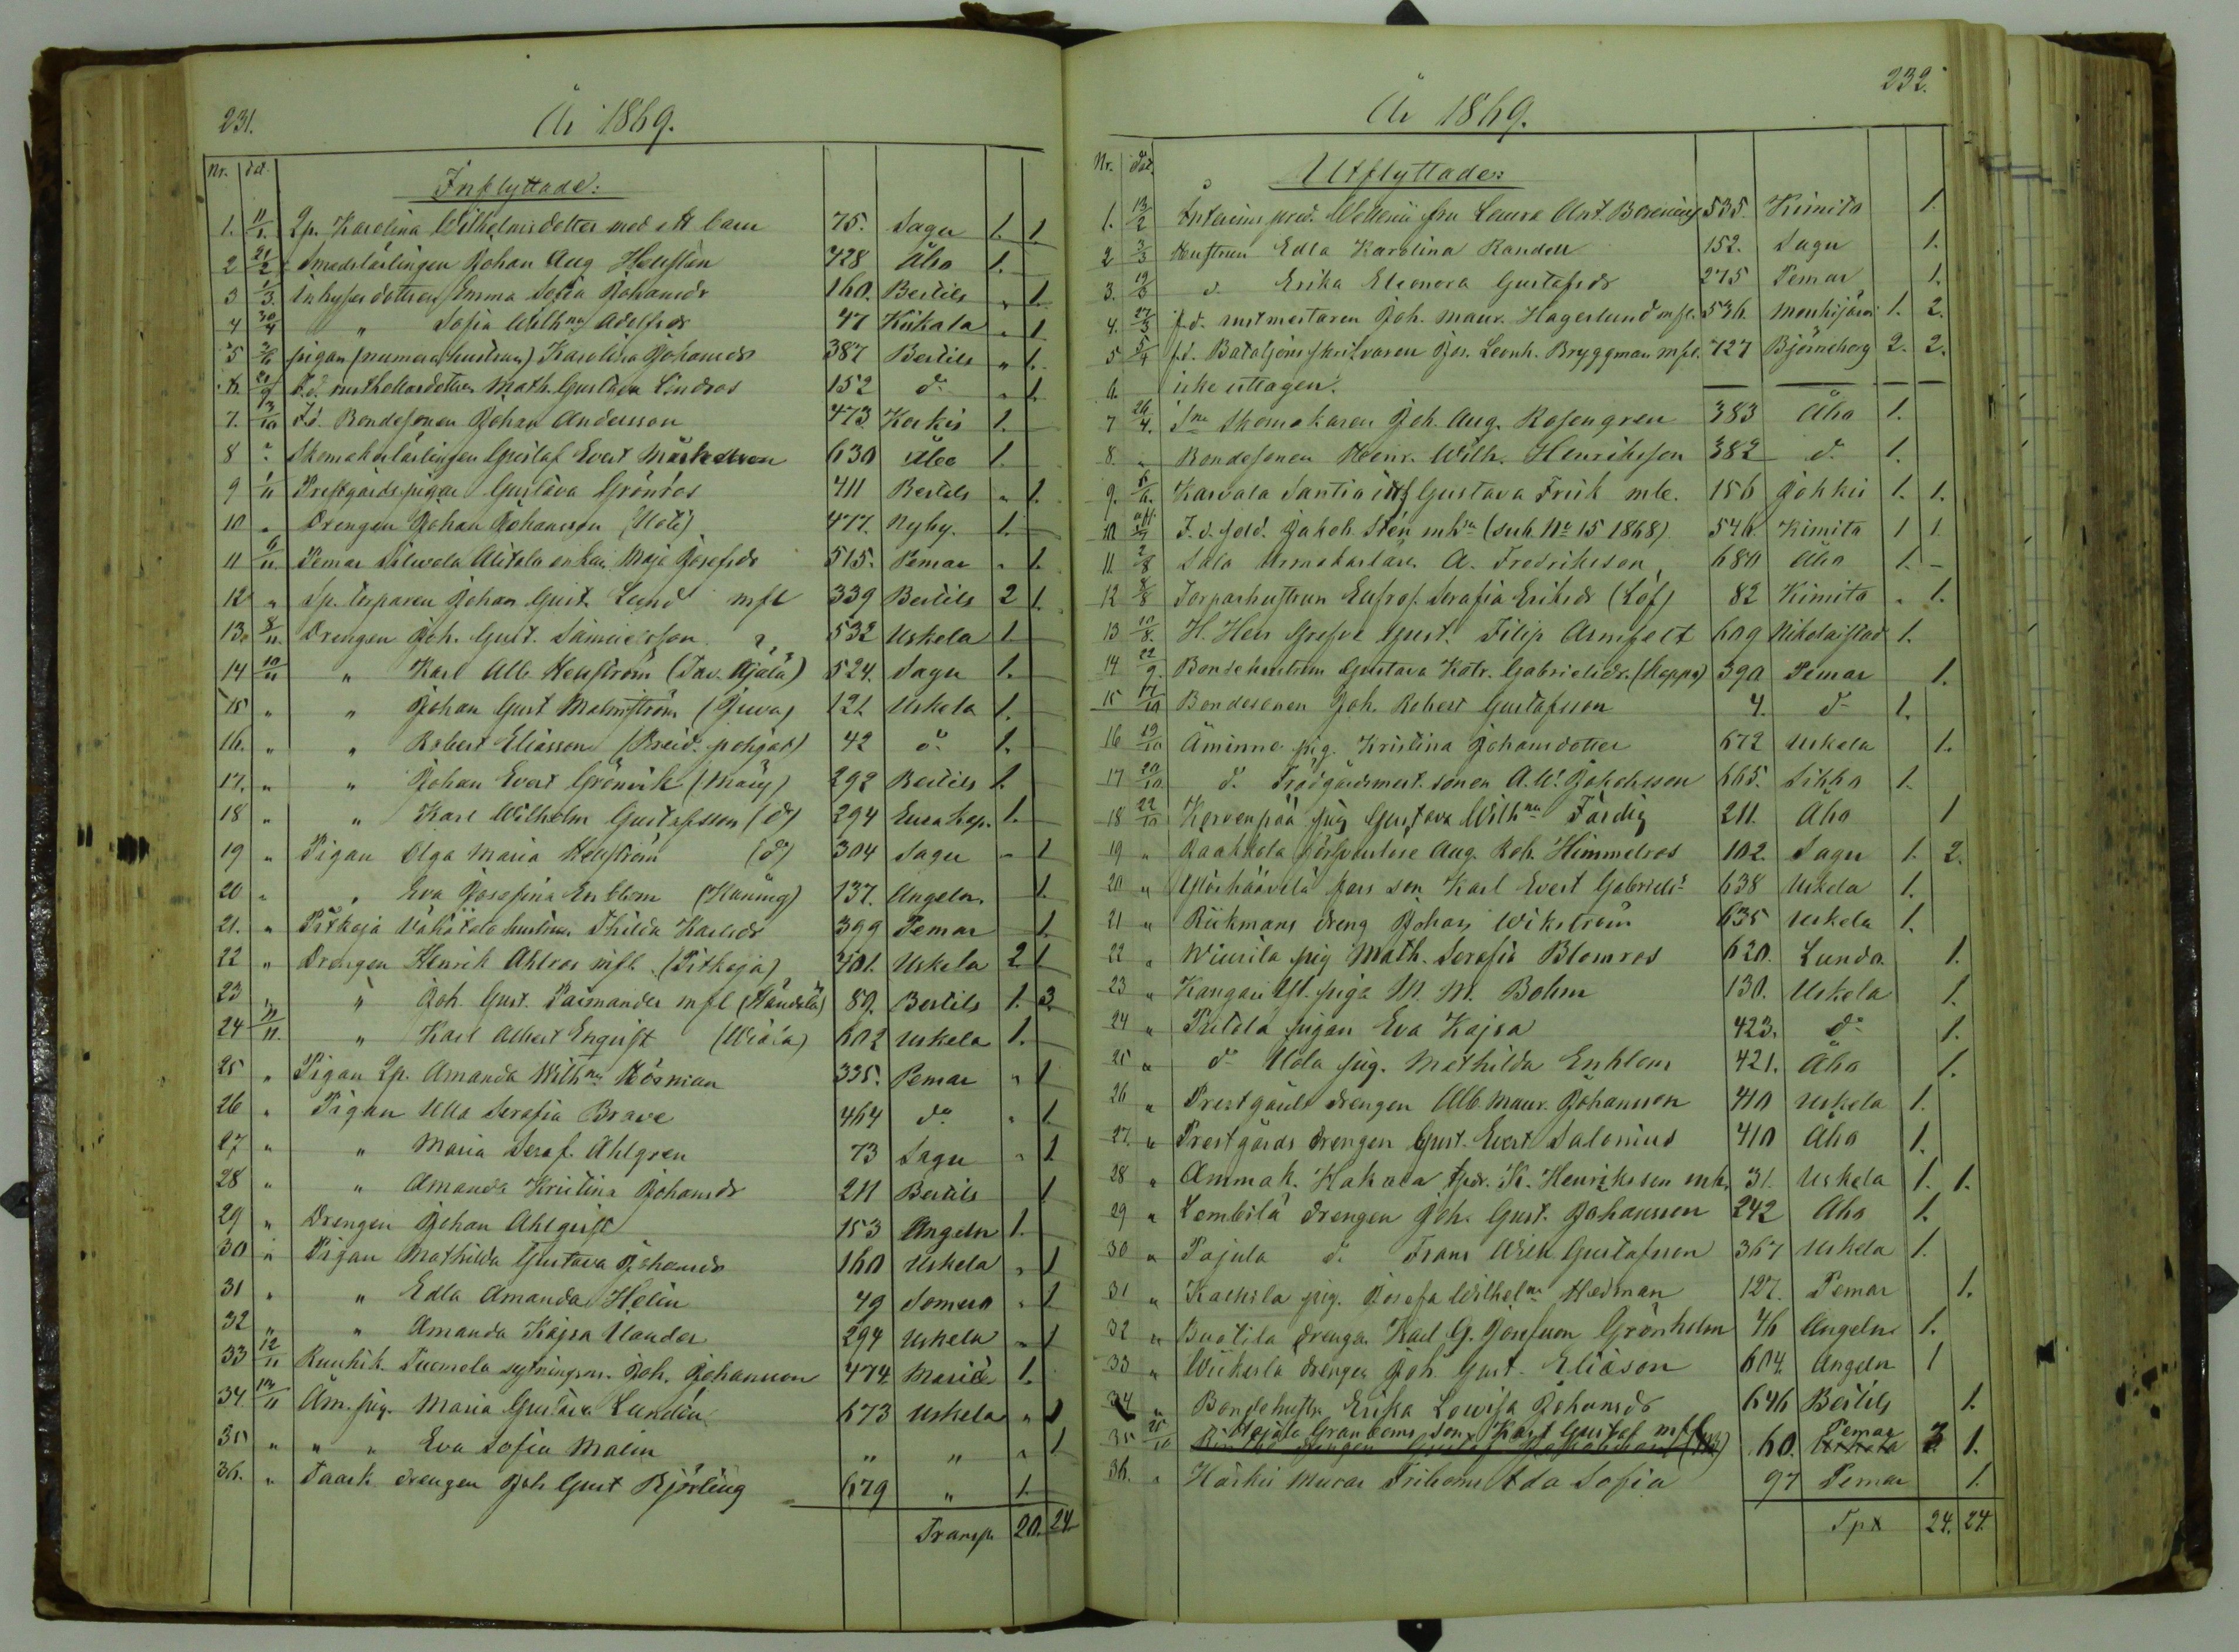 231.
År 1869.
Nr. dat.
Inflyttade:
1. 11/1. Lp. Karolina Wilhelmsdotter med ett barn 75. Sagu 1. 1.
2 21/2 Smedslärlingen Johan Aug Hellstén 728 Åbo 1.
3 1/3. Inhyses dottren Emma Sofia Johansdr 160. Bertils „ 1.
4 30/4 „ Sofia Wilhna Adolfsdr 47 Kiikala „ 1
5 pigan (numera hustrun) Karolina Johansdr 387 Bertils „ 1.
6. 20/9 F.d. rusthollarsdottren Math. Gustava Lindros 152 do „ 1
7. 13/10 F.d. Bondesonen Johan Andersson 473. Koskis 1.
8 „ Skomakarlärlingen Gustaf Evert 630 Åbo 1.
9 1/11 Prestgårds pigan Gustava Grönros 411 Bertils „ 1.
10 „ Drengen Johan Johansson 477. Nyby. 1.
11 6/11. Pemar Alitalo enkan Maja Josefsdr 515. Pemar „ 1.
12 „ Lp. torparen Johan Gust. Lund mfl 339 Bertils 2 1.
13. 8/11 Drengen Joh. Gust. Samuelsson 532 Uskela 1.
14 10/11 „ Karl Alb. Hellström 524. Sagu 1.
15 „ „ Johan Gust Malmström (Juva) 121. Uskela 1.
16. „ „ Robert Eliasson 42 do 1.
17. „ „ Johan Evert Grönvik 292 Bertils 1.
18 „ „ Karl Wilhelm Gustafsson (do) 294 Eura kap. 1.
19 „ Pigan Olga Maria Hellström (do) 304 Sagu „ 1
20 „ „ Eva Josefina Enblom 137. Angeln. 1.
21. „ Pitkoja hustrun Thilda Karlsdr 399 Pemar 1.
22 „ Drengen Henrik Ahlros mfl. (Pitkoja) 401. Uskela 2 1.
23 „ „ Joh. Gust. mfl 89. Bertils 1. 3.
24 11/11. „ Karl Albert Engvist 602 Uskela 1.
25 „ Pigan Lp. Amanda Wilhna 335. Pemar „ 1
26 „ Pigan Ulla Serafia Brave 464 do „ 1
27 „ „ Maria Seraf. Ahlgren 73 Sagu „ 1
28 „ „ Amanda Kristina Johansdr 211 Bertils 1
29 „ Drengen Johan Ahlqvist 153 Angeln 1.
30 „ Pigan Mathilda Gustava Johansdr 160 Uskela „ 1
31 „ „ Edla Amanda Helin 49 Somero „ 1
32 „ „ Amanda Kajsa Ulander 294 Uskela „ 1
33 12/11 Ruuhik. Tuomola sytningsm. Joh. Johansson 474. Mariæ 1.
34 13/11 Åm. pig. Maria Gustava Lundén 673 Uskela „ 1
35 „ „ „ Eva Sofia Malin „ „ „ 1
36. „ Taark drengen Joh Gust Björling 679 „ 1.
Transp. 20. 24
232.
År 1869.
Nr. dat.
Utflyttade:
1. 13/2 fru Laura Ant. 535. Kimito 1.
2 3/3 Hustrun Edla Karolina Randell 152. Sagu 1.
3. 19/3 d. Erika Eleonora Gustafsdr 275 Pemar 1.
4. 27/3 f.d. rustmestaren Joh. Maur. Hagerlund mfl. 536. 1. 2.
5 5/4 f.d. Bataljonsskrifvaren Jos. Leonh. Bryggman mfl. 727 Björneborg 2. 2.
6. icke uttagen. — — — —
7 26/4. Skomakaren Joh. Aug. Rosengren 383 Åbo 1.
8. „ Bondesonen Henr. Wilh. Henriksson 382 d. 1.
9. Karvala Gustava Frisk mb. 156 Jokkis 1. 1.
10 F.d. sold. Jakob Stén mhu (sub No 15 1868) 546 Kimito 1 1.
11. 2/8 Salo A. Fredriksson 680 Åbo 1. –
12 8/8 Torparhustrun Eufros. Serafia Eriksdr (Löf) 82 Kimito „ 1.
13 10/8. H. Herr Grefve Gust. Filip Armfelt 609 Nikolaistad 1.
14 22/9. Bondehustrun Gustava Katr. Gabrielsdr. 390 Pemar 1.
15 17/10 Bondesonen Joh. Robert Gustafsson 4. d– 1.
16 19/10 Åminne pig. Kristina Johansdotter 672 Uskela 1.
17 20/10 d. Trädgårdsmest. sonen A.W. 665. Sibbo 1.
18 22/10 Kervenpää pig Gustava Wilhna Färdig 211. Åbo 1
19 „ Raatkola Aug. Rob. Himmelros 102. Sagu 1. 2.
20 „ son Karl Evert 638 Uskela 1.
21 „ Riikmans dreng Johan Wikström 635 Uskela 1.
22 „ Wiurila pig Math. Serafia Blomros 620. Lundo 1.
23 „ piga M. M. Bohm 130. Uskela 1.
24 „ pigan Eva Kajsa 423. d– 1.
25 „ d– Uola pig. Mathilda Enblom 421. Åbo 1.
26 „ drengen Alb. Maur. Johansson 410 Uskela 1.
27. „ Prestgårds drengen Gust. Evert Salonius 410 Åbo 1.
28 „ Ammak. Hakala K. Henriksson mh. 31. Uskela 1. 1.
29 „ Lembilä drengen Joh. Gust. Johansson 242 Åbo 1.
30 „ Pajula d. Frans Wilh Gustafsson 367 Uskela 1.
31 „ Kaukola pig. Josefa Wilhelna Hedman 127. Pemar 1.
32 „ Buotila drengen Karl G. Josefsson Grönholm 46 Angeln 1.
33 „ drengen Joh Gust. Eliasson 604. Angeln 1
34 „ Bondehustr. Erika Lovisa Johansdr 646 Bertils 1.
35 25/10 Granboms son Karl Gustaf mfl 60. Pemar 1.
36. „ Ada Sofia 97 Pemar 1.
24. 24.